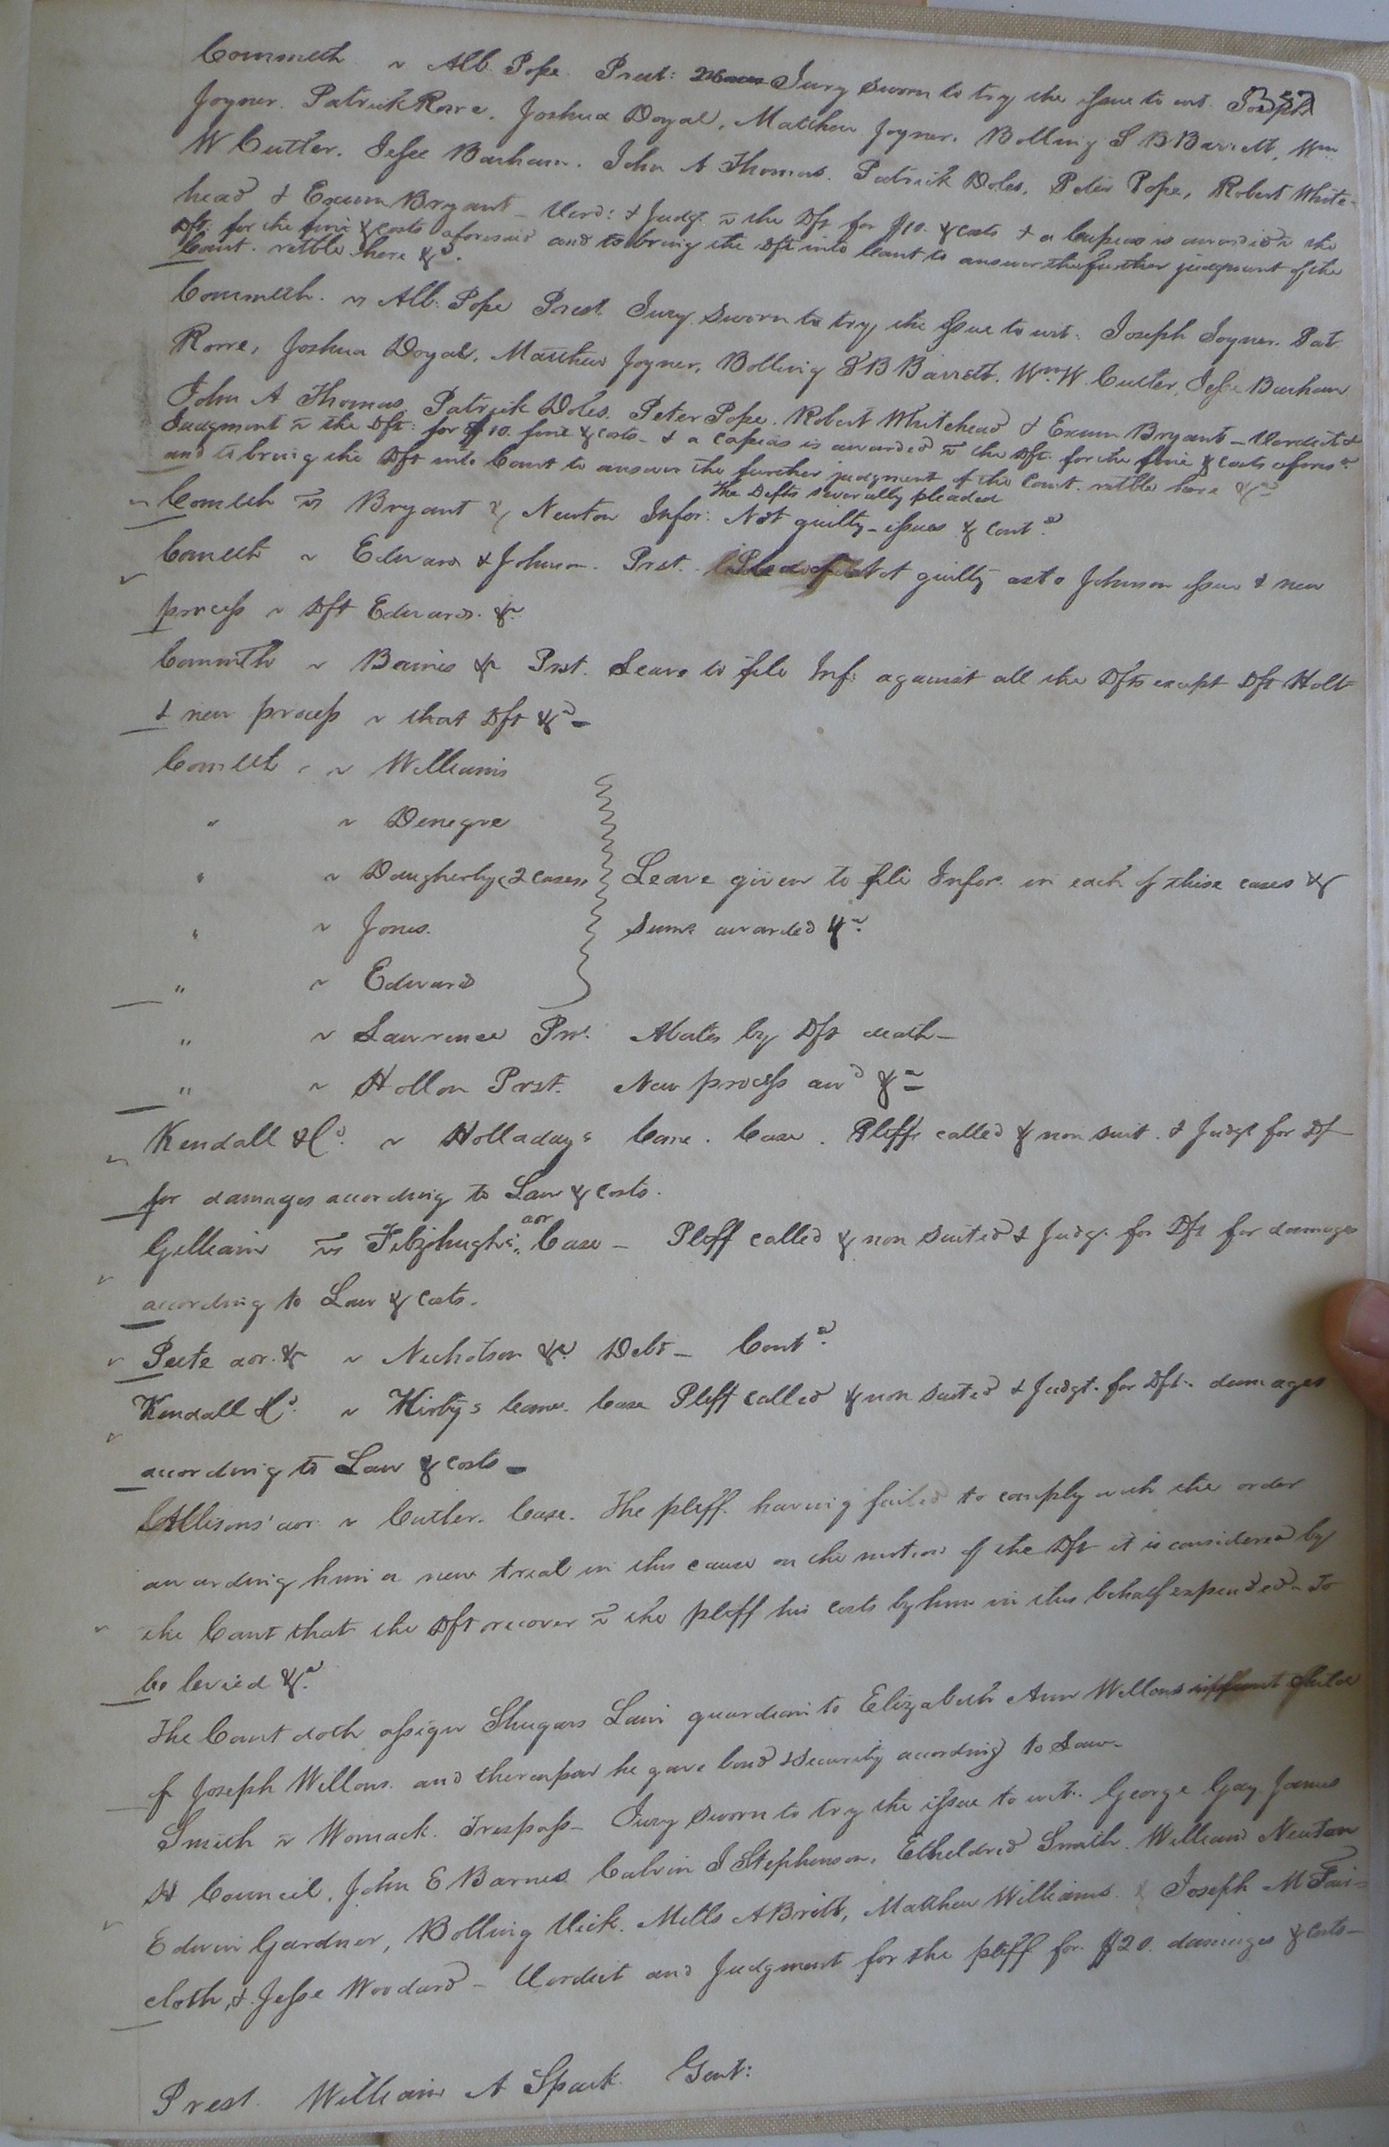 Commlth vs Alb. Pope. Prest: Jury sworn to try the issue to wit. Joseph
357
Joyner. Patrick Rore, Joshua Doyal, Matthew Joyner, Bolling S B Barrett, Wm
W Cutler, Jesse Barham. John A Thomas. Patrick Doles, Peter Pope, Robert White-
head & Exum Bryant – Verd: & Judgt. vs the Dft for $10. & costs & a Capias is awarded vs the
Dft. for the fine & costs aforesaid and to bring the Dft into Court to answer the further judgment of the
Court. retble here &c.
Commlth. vs Alb. Pope Prest. Jury sworn to try the issue to wit. Joseph Joyner. Pat.
Rorre, Joshua Doyal, Matthew Joyner, Bolling S B Barrett, Wm. W. Cutler, Jesse Barham
John A Thomas, Patrick Doles. Peter Pope. Robert Whitehead & Exum Bryant – Verdict &
Judgment vs the Dft: for $10. fine & costs – & a capias is awarded vs the Dft. for the fine & costs aforesd.
and to bring the Dft into Court to answer the further judgment of the Court. retble here &c
The Defts severally pleaded
Comlth vs Bryant & Newton Infor: Not guilty – issues & contd.
Comlth vs Edwards & Johnson. Prst. Plea of Not guilty as to Johnson issue & new
process vs Dft Edwards. &c
Commlth vs Barnes &c Prst. Leave to file Inf: against all the Dfts except Dft Holt
& new process vs that Dft &c –
Comlth vs Williams
" vs Denegre
" vs Daugherty (2 cases) Leave given to file Infor. in each of these cases &
" vs Jones. Sums awarded &c.
" vs Edwards
" vs Lawrence Prs. Abates by Dft death –
" vs Hollon Prst. New process awd &c
Kendall & Co. vs Holladays Case. Pliffs called & non suit. & Judgt for Df
for damages according to Law & costs.
Gilliam vs Fitzhugh's aor Case – Pliff called & non suited & Judgt. for Dft for damages
according to Law & costs.
Peete aor. &c vs Nicholson &c. Debt – Contd.
Kendall & Co. vs Kirbys Case Pliff called & non suited & Judgt. for Dft. damages
according to Law & costs –
Allisons' aor. vs Cutler. Case. The pliff. having failed to comply with the order
awarding him a new trial in this cause on the motion of the Dft it is considered by
the Court that the Dft recover vs the pliff his costs by him in this behalf expended – To
be levied &c.
The Court doth assign Shugars Lain guardian to Elizabeth Ann Wellons infant child
of Joseph Wellons. and thereupon he gave bond & security according to Law –
Smith vs Womack. Trespass – Jury sworn to try the issue to wit. George Gay James
H Council, John E Barnes Calvin J Stephenson, Etheldred Smith. William Newton
Edwin Gardner, Bolling Vick. Mills A Britt, Matthew Williams. Joseph M Fair-
cloth, & Jesse Woodard – Verdict and Judgment for the pliff for $20. damages & costs –
Prest. William A Spark Gent: